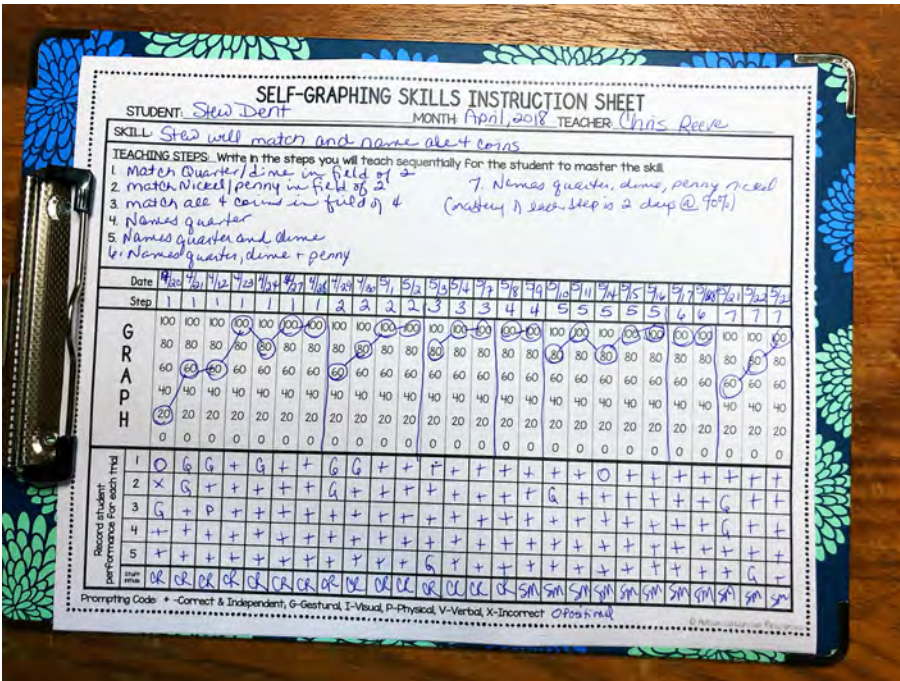 SELF-GRAPHING SKILLS INSTRUCTION SHEET
STUDENT: Stew Dent MONTH: April, 2018 TEACHER: Chris Reeve
SKILL: Stew will match and name all 4 coins
TEACHING STEPS: Write in the steps you will teach sequentially for the student to master the skill.
1. Match Quarter/dime in field of 2
2. match Nickel/penny in field of 2
3. match all 4 coins in field of 4
4. Names quarter
5. Names quarter and dime
6. Names quarter, dime + penny
7. Names quarter, dime, penny nickel
(mastery of each step is 2 days @ 90%)
Date 4/20 4/21 4/22 4/23 4/24 4/27 4/28 4/29 4/30 5/1 5/2 5/3 5/4 5/7 5/8 5/9 5/10 5/11 5/14 5/15 5/16 5/17 5/21 5/22
Step 1 1 1 1 1 1 1 2 2 2 2 3 3 3 4 4 5 5 5 5 5 6 6 7 7 7
GRAPH
100 100 100 100 100 100 100 100 100 100 100 100 100 100 100 100 100 100 100 100 100 100 100 100 100 100
80 80 80 80 80 80 80 80 80 80 80 80 80 80 80 80 80 80 80 80 80 80 80 80 80 80
60 60 60 60 60 60 60 60 60 60 60 60 60 60 60 60 60 60 60 60 60 60 60 60 60 60
40 40 40 40 40 40 40 40 40 40 40 40 40 40 40 40 40 40 40 40 40 40 40 40 40 40
20 20 20 20 20 20 20 20 20 20 20 20 20 20 20 20 20 20 20 20 20 20 20 20 20 20
0 0 0 0 0 0 0 0 0 0 0 0 0 0 0 0 0 0 0 0 0 0 0 0 0 0
Record student performance for each trial
1 O G G + G + + G G + + + + + + + + + O + + + + + + +
2 X G + + + + + G + + + + + + + + G + + + + + + G + +
3 G + P + + + + + + + + + + + + + + + + + + + + G + +
4 + + + + + + + + + + + + + + + + + + + + + + + + + +
5 + + + + + + + + + + + G + + + + + + + + + + + + G +
Staff Initials CR CR CR CR CR CR CR CR CR CR CR CR CR CR CR SM SM SM SM SM SM SM SM SM SM SM
Prompting Code: + -Correct & Independent, G-Gestural, I-Visual, P-Physical, V-Verbal, X-Incorrect O positional